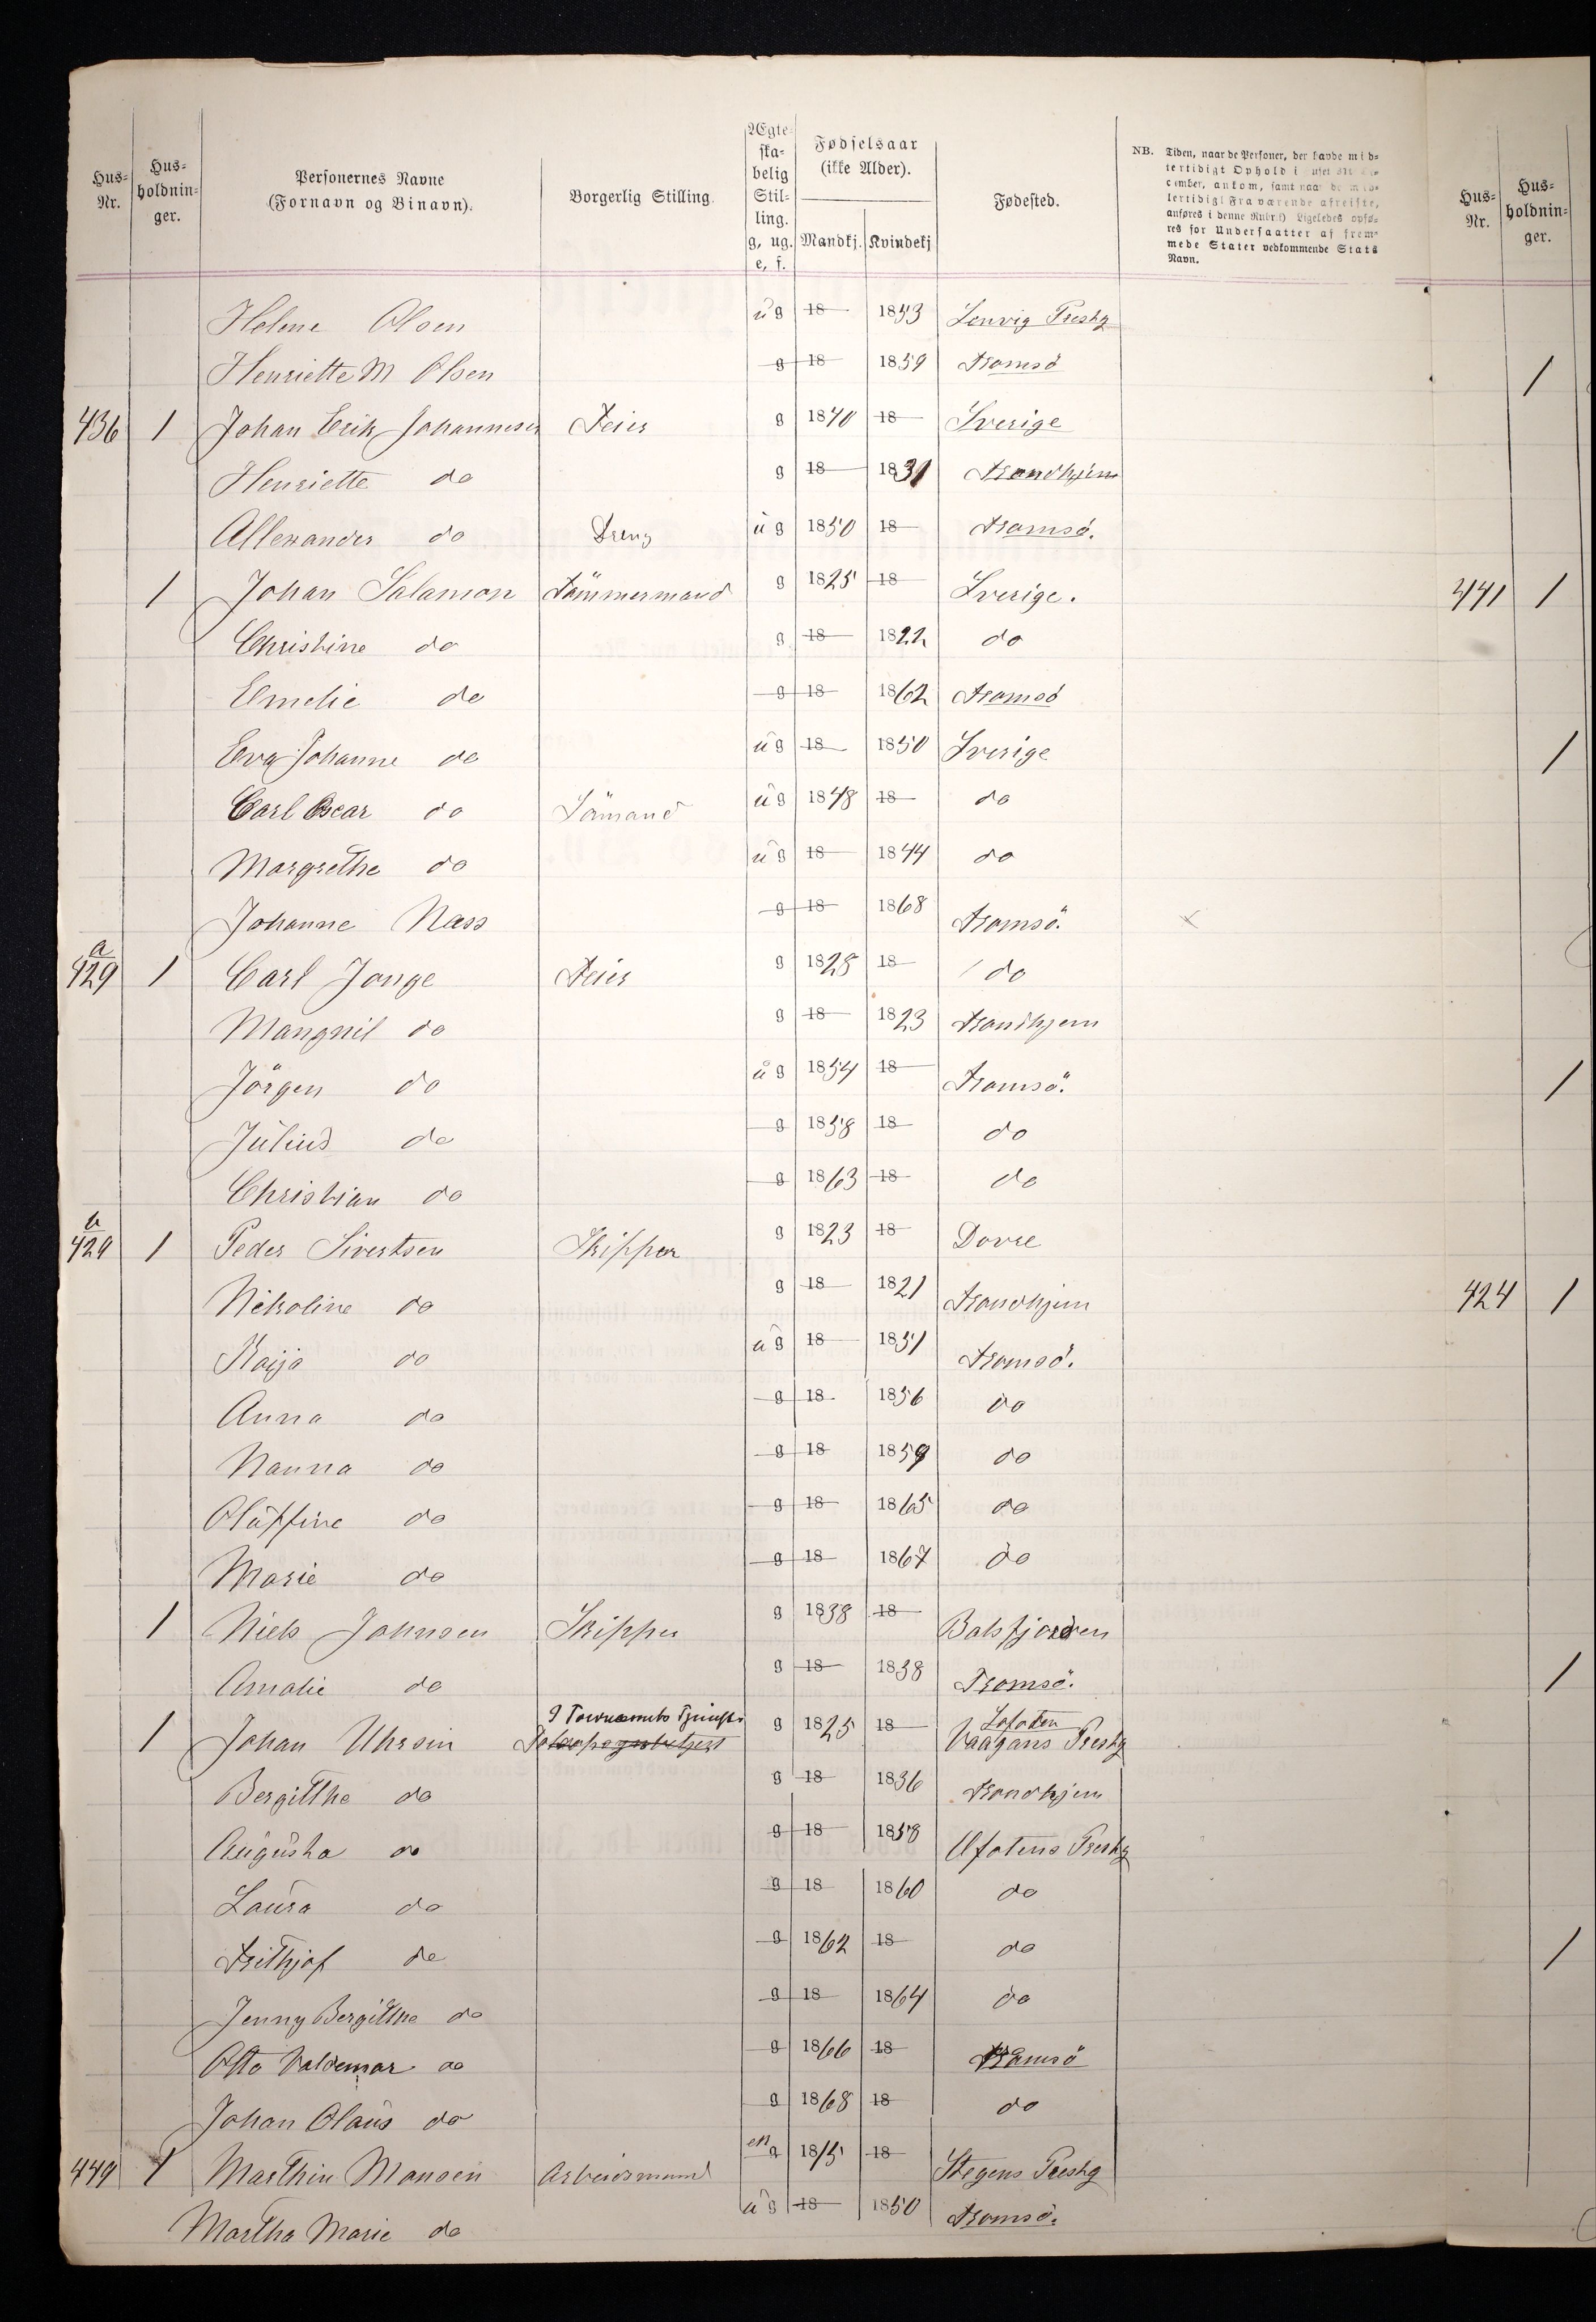 Hus-Nr. Hus-holdnin-ger. Personernes Navne (Fornavn og Binavn). Borgerlig Stilling. Ægte-ska-belig Stil-ling. g, ug. e, f. Fødselsaar (ikke Alder). Mandkj. Kvindekj Fødested. NB. Tiden, naar de Personer, der havde mid-
anføres i denne Rubr.) Ligeledes opfø-
res for Undersaatter af frem-
mede Stater vedkommende Stats
Navn.
Hus-Nr. Hus-holdnin-ger.
Helene Olsen ug 18 1853 Lenvig Prestg
Henriette M Olsen g 18 1859 Tromsö
1
436 1 Johan Erik Johannesen Feier g 1840 18 Sverige
Henriette do g 18 1831 Trondhjem
Allexander do Dreng ug 1850 18 Tromsö.
1 Johan Salamon Tömmermand g 1825 18 Sverige.
441 1
Christine do g 18 1822 do
Emelie do g 18 1862 Tromsö
Eva Johanne do ug 18 1850 Sverige
1
Carl Oscar do Sömand ug 1848 18 do
Margrethe do ug 18 1844 do
Johanne Næss g 18 1868 Tromsö.
a
429 1 Carl Jonge Feier g 1828 18 do
Mangnil do g 18 1823 Trondhjem
Jörgen do ug 1854 18 Tromsö.
1
Julius do g 1858 18 do
Christian do g 1863 18 do
b
429 1 Peder Sivertsen Skipper g 1823 18 Dovre
Nikoline do g 18 1821 Trondhjem
424 1
Kaja do ug 18 1851 Tromsö.
Anna do g 18 1856 do
Nanna do g 18 1859 do
Oluffine do g 18 1865 do
Marie do g 18 1867 do
1 Niels Johnsen Skipper g 1838 18 Balsfjorden
Amalie do g 18 1838 Tromsö.
1
Lofoten
1 Johan Uhrsin g 1825 18 Vaagans Prestg
Bergitthe do g 18 1836 Trondhjem
Augusta do g 18 1858 Ofotens Prestg
Laura do g 18 1860 do
Frithjof do g 1862 18 do
1
Jenny Bergitthe do g 18 1864 do
Otto Valdemar do g 1866 18 Tromsö
Johan Olaus do g 1868 18 do
449 1 Marthin Monsen Arbeidsmand en g 1815 18 Stegens Prestg
Martha Marie do ug 18 1850 Tromsö.